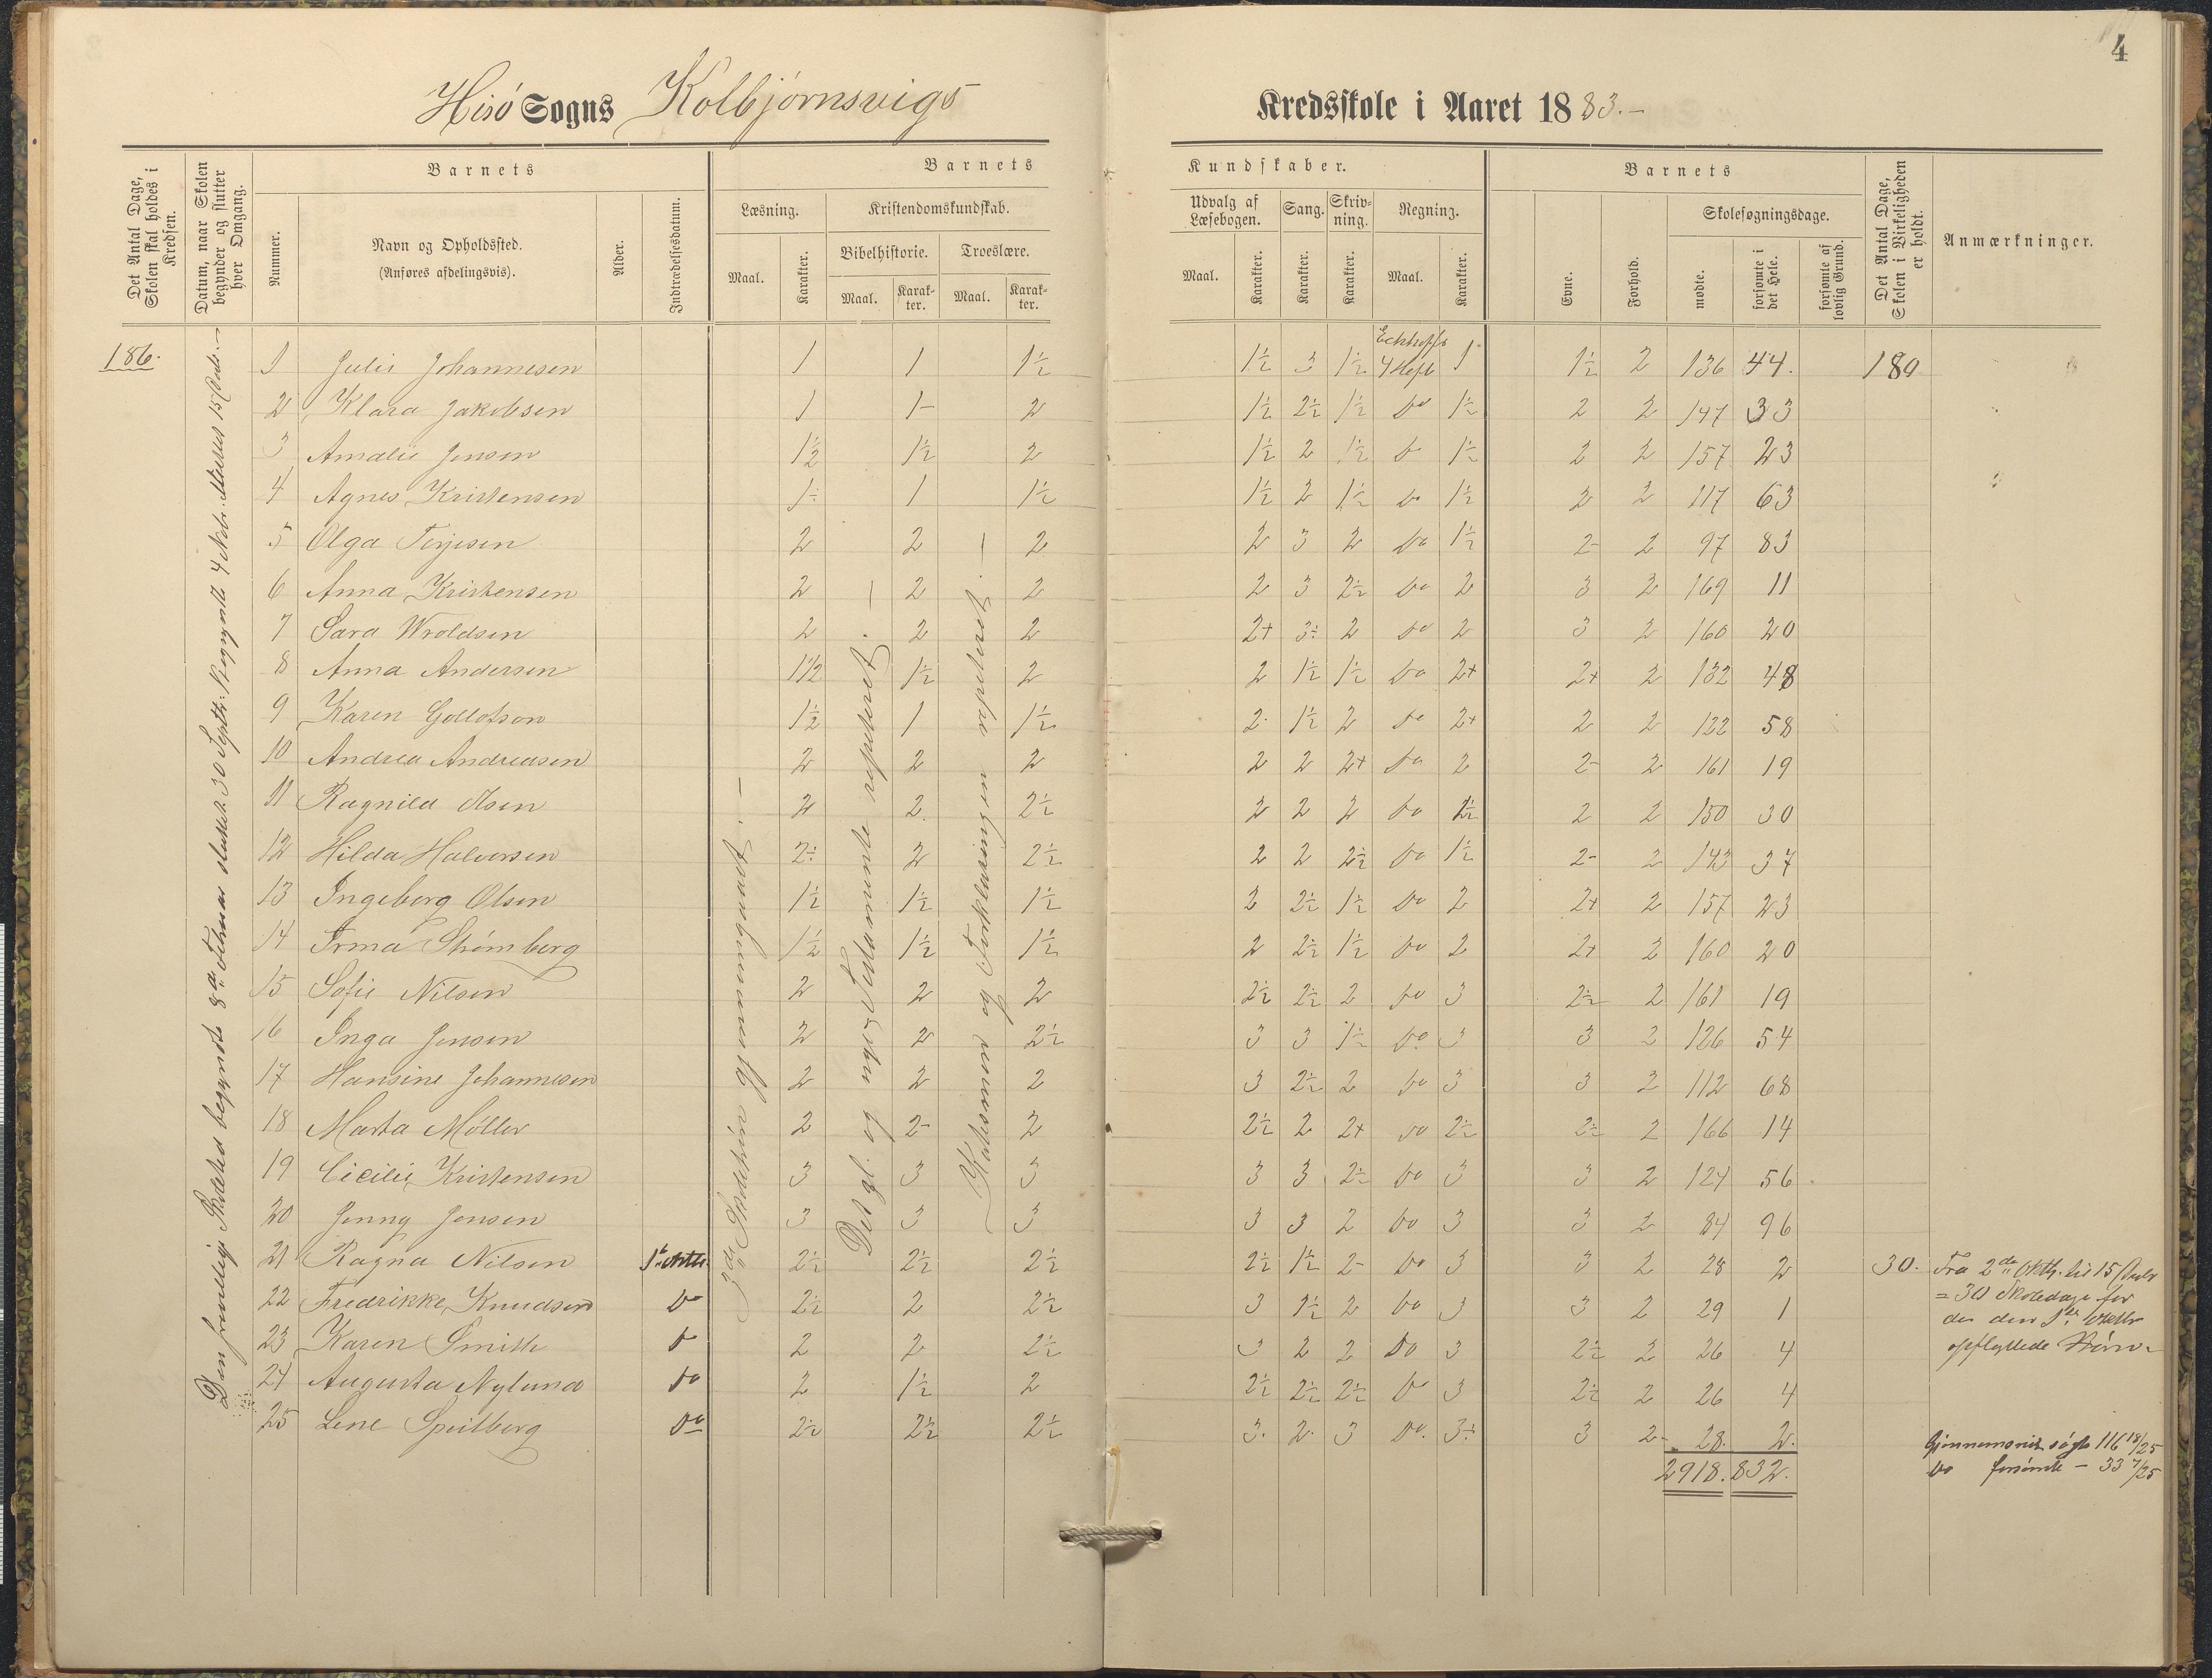 4
Hisö Sogns Kolbjörnsvigs Kredsskole i Aaret 1883.-
Det Antal Dage, Skolen skal holdes i Kredsen.
Datum, naar Skolen begynder og slutter hver Omgang.
Barnets
Nummer.
Navn og Opholdssted.
(Anføres afdelingsvis).
Alder.
Indtrædelsesdatum.
Barnets Kundskaber.
Læsning.
Maal.
Karakter.
Kristendomskundskab.
Bibelhistorie.
Troeslære.
Maal.
Karakter.
Maal.
Karakter.
Udvalg af Læsebogen.
Maal.
Karakter.
Sang.
Karakter.
Skrivning.
Karakter.
Regning.
Maal.
Karakter.
Barnets
Evne.
Forhold.
Skolesøgningsdage.
mødte.
forsømte i det Hele.
forsømte af lovlig Grund.
Det Antal Dage, Skolen i Virkeligheden er holdt.
Anmærkninger.
186.
Det gl. og nye Testamente repeteret.
Katesismen og Forklaringen repeteret.
1 Julie Johannesen 1 1 1½ 1½ 3 1½ 4 Hefte 1 1½ 2 136 44. 180
2 Klara Jakobsen 1 1- 2 1½ 2½ 1½ do 1½ 2 2 147 33
3 Amalie Jensen 1½ 1½ 2 1½ 2 1½ do 1½ 2 2 157 23
4 Agnes Kristensen 1÷ 1 1½ 1½ 2 1½ do 1½ 2 2 117 63
5 Olga Terjesen 2 2 2 2 3 2 do 1½ 2- 2 97 83
6 Anna Kristensen 2 2 2 2 3 2½ do 2 3 2 169 11
7 Sara Wroldsen 2 2 2 2+ 3÷ 2 do 2 3 2 160 20
8 Anna Andersen 1½ 1½ 2 2 1½ 1½ do 2+ 2+ 2 132 48
9 Karen Gollofson 1½ 1 1½ 2 1½ 2 do 2+ 2 2 122 58
10 Andrea Andreasen 2 2 2 2 2 2+ do 2 2- 2 161 19
11 Ragnild Olsen 2 2 2½ 2 2 2 do 1½ 2 2 150 30
12 Hilda Halvorsen 2÷ 2 2½ 2 2 2½ do 1½ 2- 2 143 37
13 Ingeborg Olsen 1½ 1½ 1½ 2 2½ 1½ do 2 2+ 2 157 23
14 Irma Strömberg 1½ 1½ 1½ 2 2½ 1½ do 2 2+ 2 160 20
15 Sofie Nilsen 2 2 2 2½ 2½ 2 do 3 2½ 2 161 19
16 Inga Jensen 2 2 2½ 3 3 1½ do 3 3 2 126 54
17 Hansine Johannesen 2 2 2 3 2½ 2 do 3 3 2 112 68
18 Marta Möller 2 2- 2 2½ 2 2+ do 2½ 2½ 2 166 14
19 Cicilie Kristensen 3 3 3 3 3 2½ do 3 3 2 124 56
20 Jenny Jensen 3 3 3 3 3 2 do 3 3 2 84 96
21 Ragna Nilsen 2½ 2½ 2½ 2½ 1½ 2- do 3 3 2 28 2 30.
22 Fredrikke Knudsen do 2½ 2 2½ 3 1½ 2 do 3 3 2 29 1
23 Karen Smith do 2 2 2½ 3 2 2 do 3 2½ 2 26 4
24 Augusta Nylund do 2 1½ 2 2½ 2½ 2½ do 3 2½ 2 26 4
25 Lene Speilberg do 2½ 2½ 2½ 3. 2. 3 do. 3÷ 3 2- 28. 2.
2918. 832.
Fra 2de
= 30 Skoledage for
opflyttede Börn.
Gjennemsnit. søgt 116 18/25
do forsömte - 33 7/25